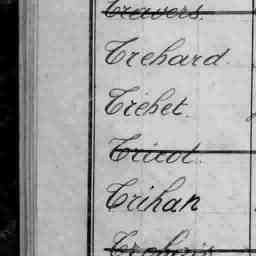 Travers.
Trehard.
Tréhet.
Tricot.
Trihan